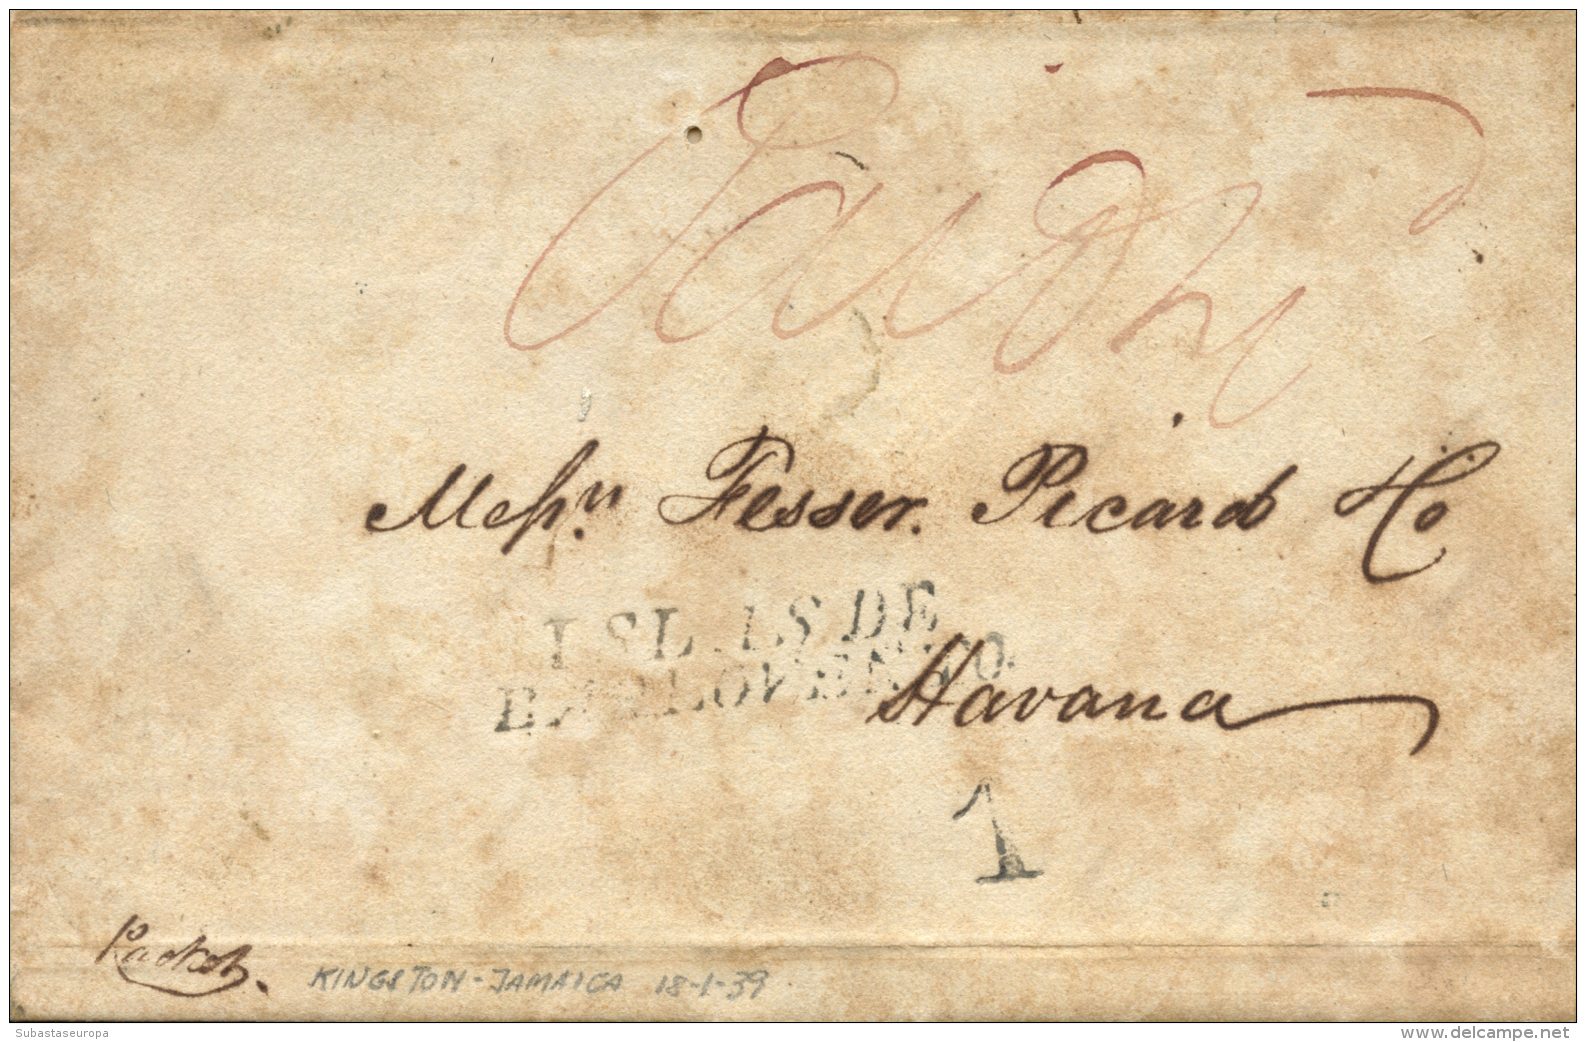 Paid 1/
Messrs. Fesser. Picard & Co
ISLAS DE
BARLOVENTO.
Havana
1
Packet.
KINGSTON-JAMAICA 18-1-39
Subastaseuropa
www.delcampe.net